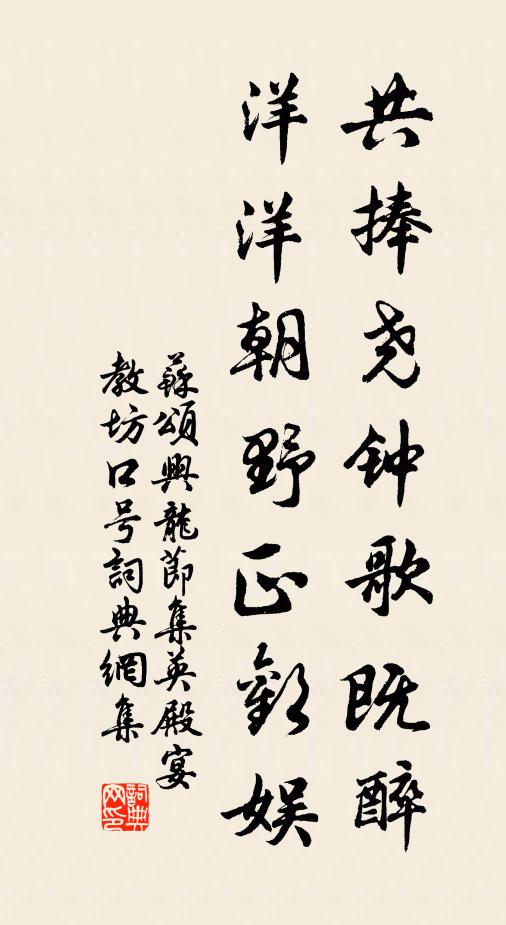 共捧尧钟歌既醉
洋洋朝野正歡娱
蘇頌興龍節集英殿宴
教坊口号詞典網集
詞典
网印